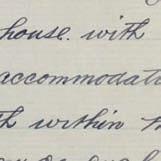 house. with
accommodati
th within